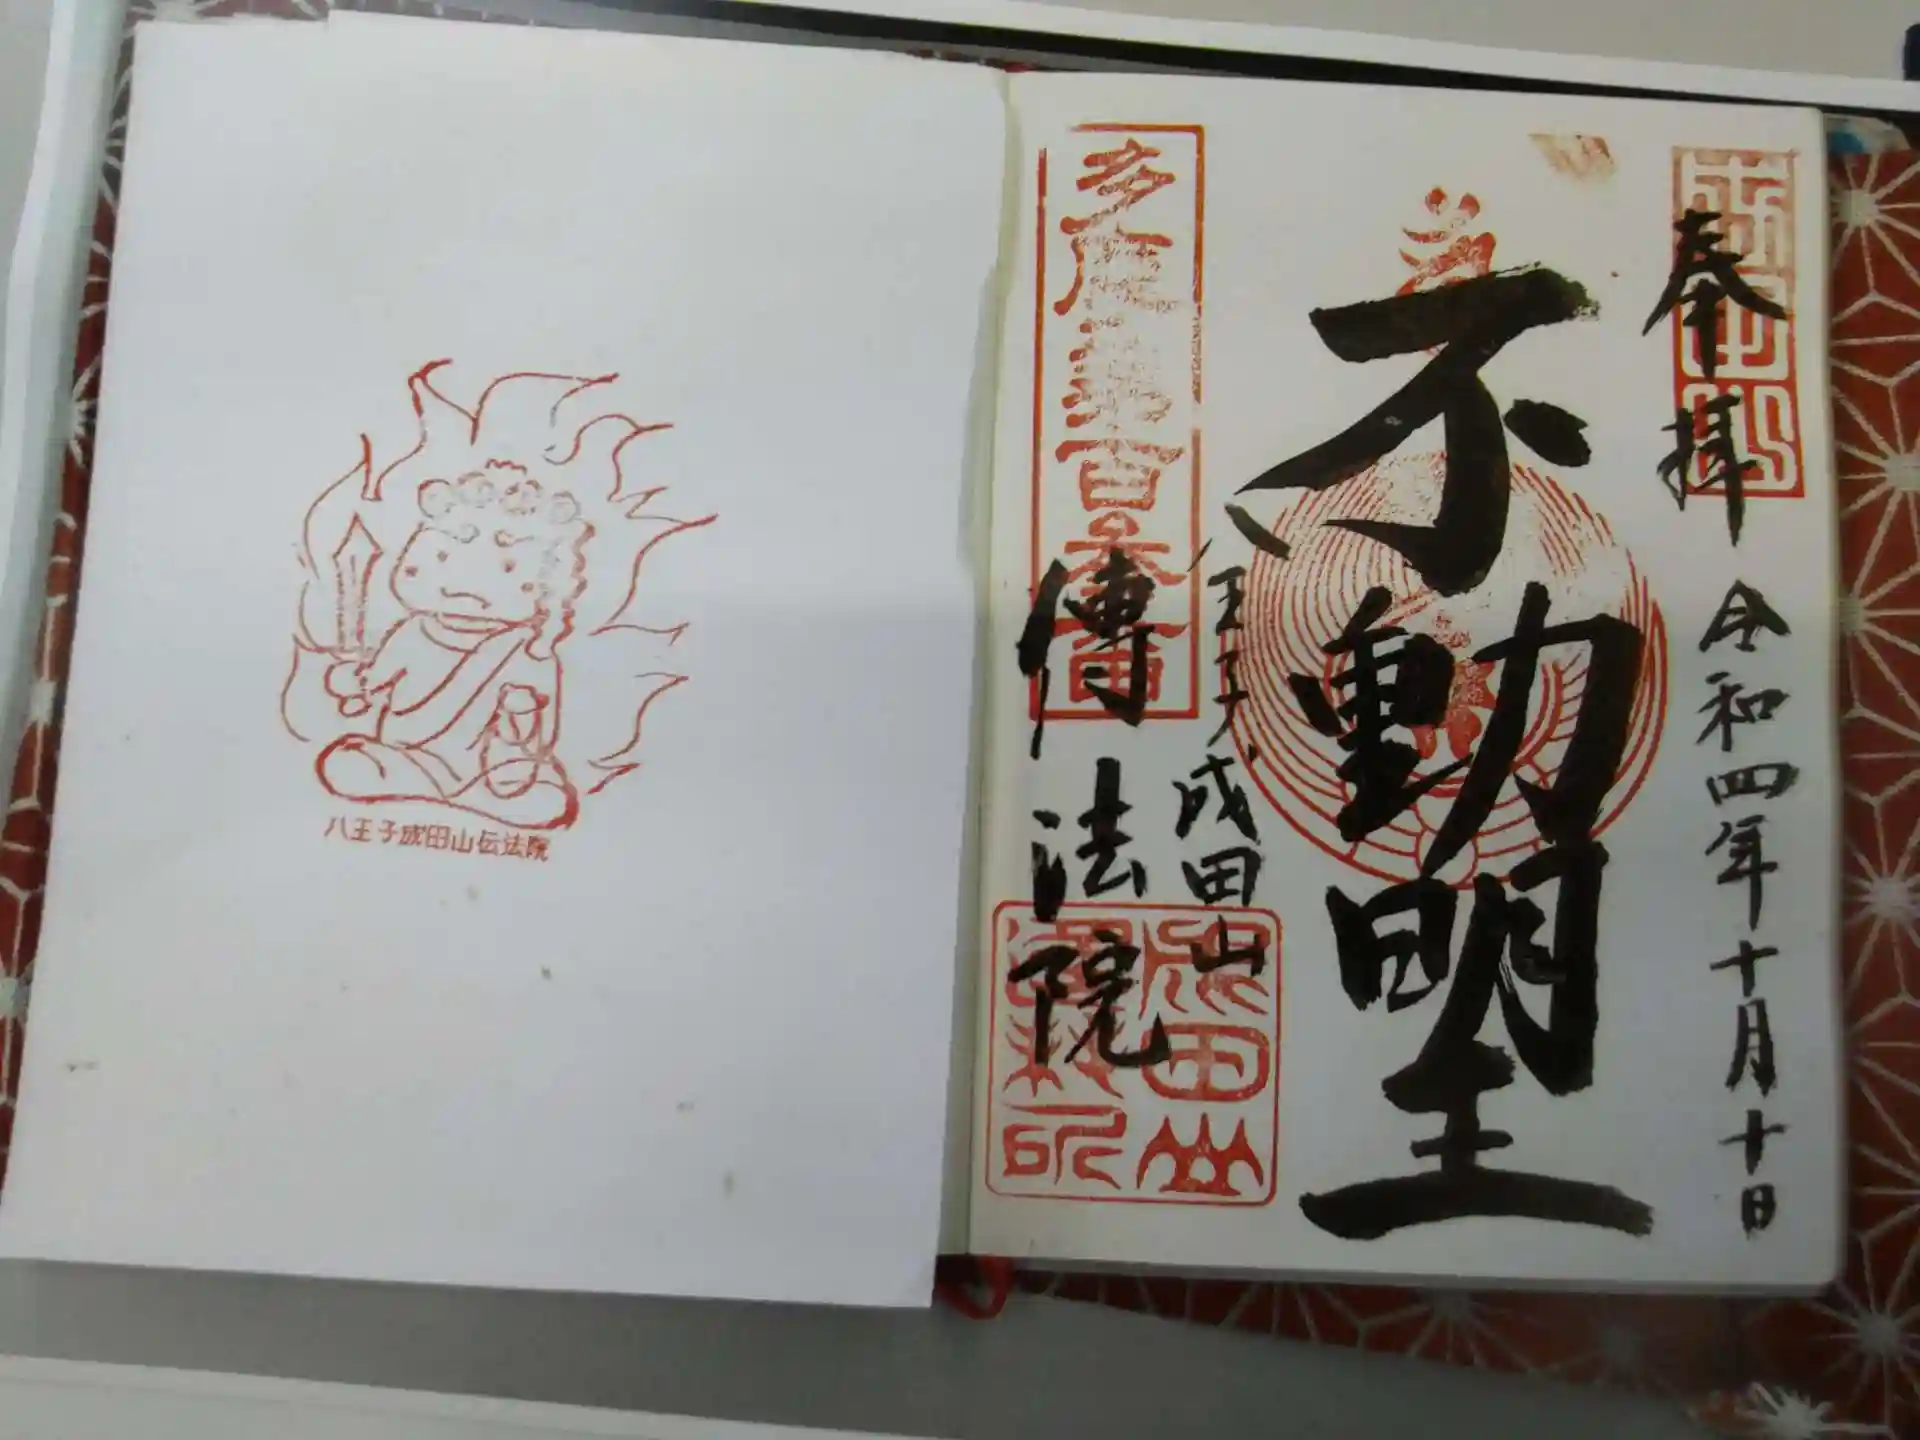 奉拝
令和四年十月十日
成田山
不動明王
八王子成田山
傳法院
成田山
八王子成田山伝法院